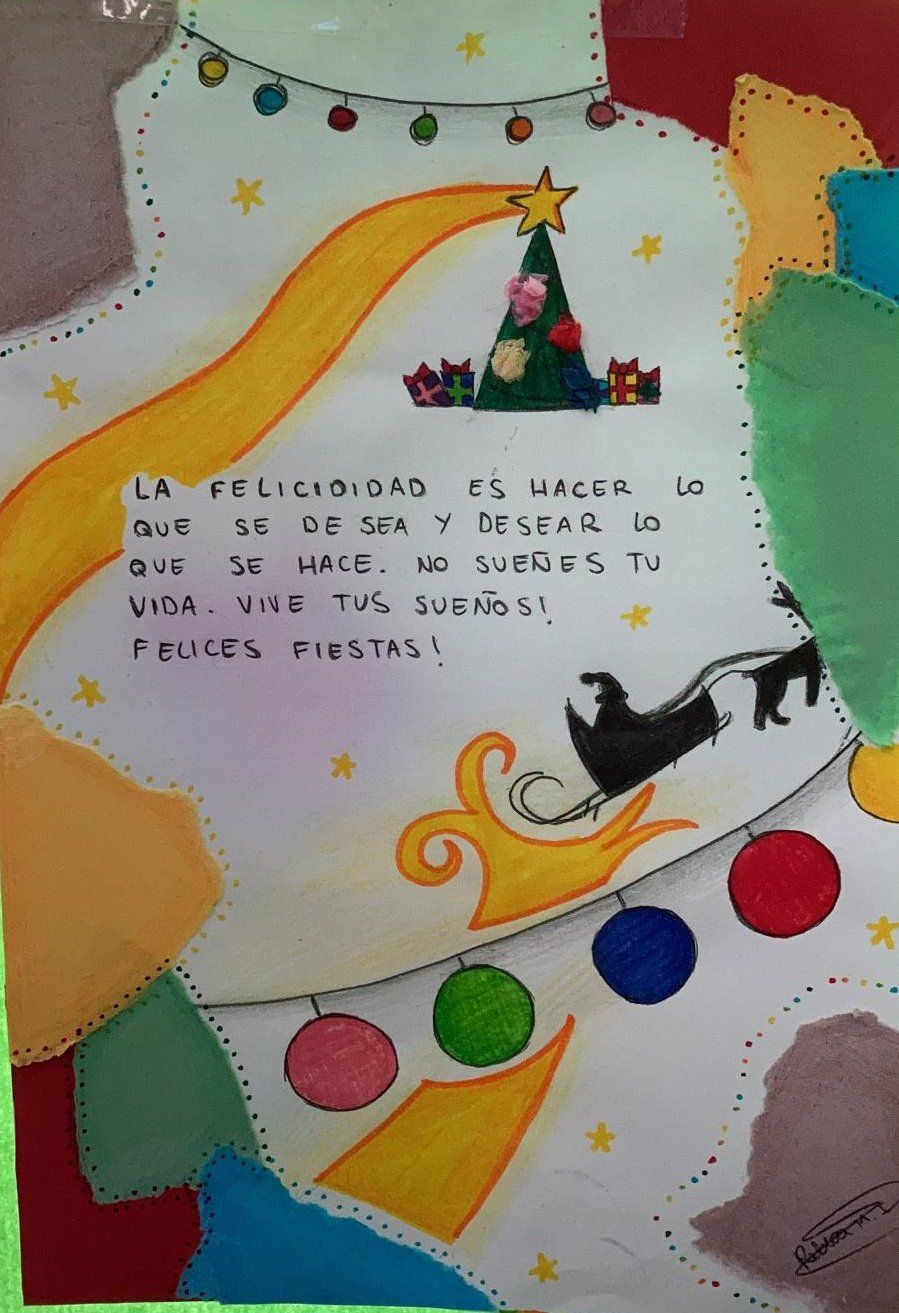 LA FELICIDIDAD ES HACER LO
QUE SE DE SEA Y DESEAR LO
QUE SE HACE. NO SUEÑES TU
VIDA. VIVE TUS SUEÑOS!
FELICES FIESTAS!